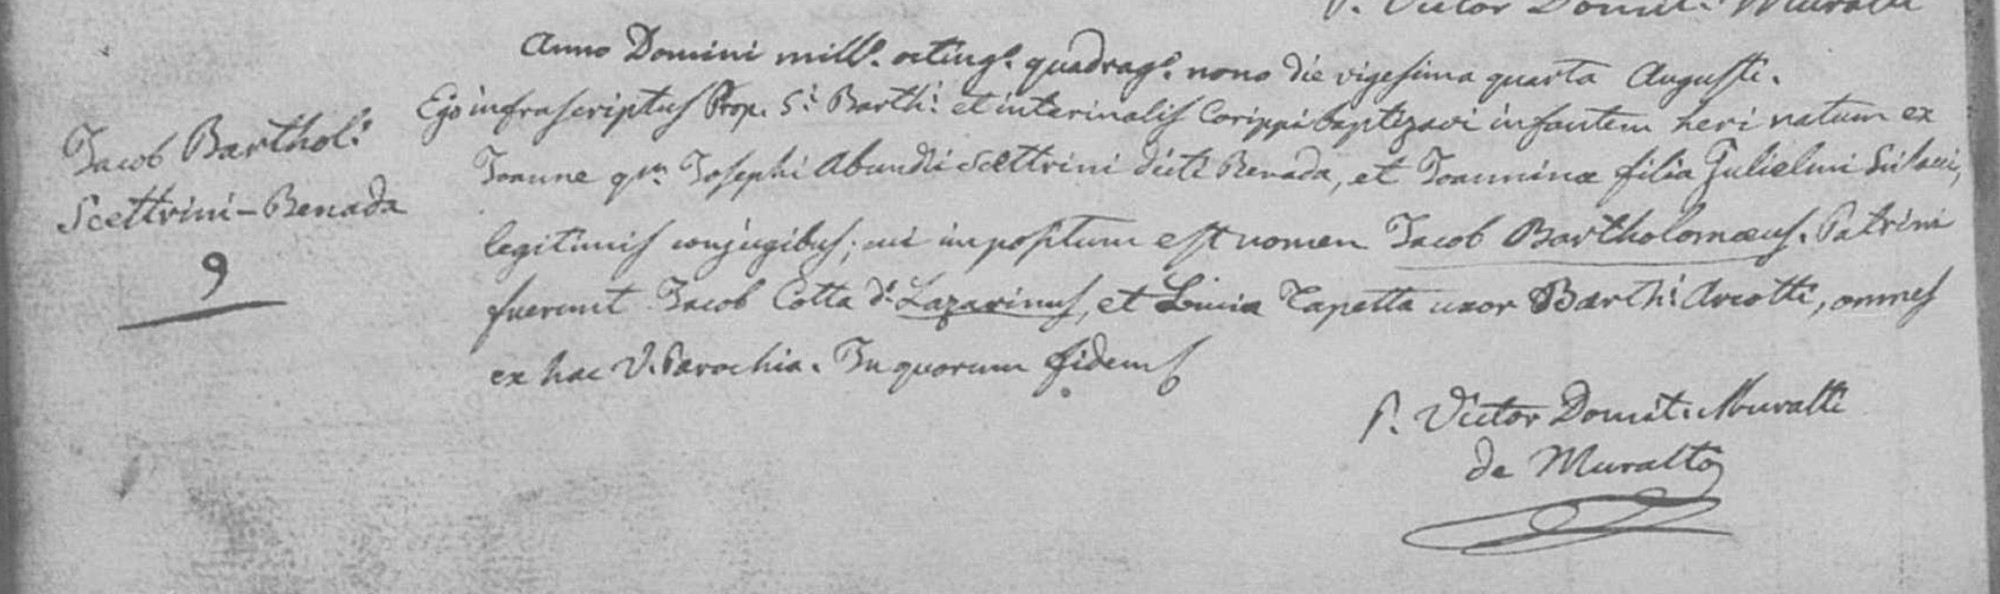 P. Victor Domit. Muralti
Anno Domini mill.º octing.º quadrag.º nono die vigesima quarta Augusti.
Jacob Barthol.s
Scettrini-Benada
9
Ego infrascriptus Prop. S.i Barth.i et interinalis Corippi baptizavi infantem heri natum ex
Joanne q.m Josephi Abundii Scettrini dicti Benada, et Joannina filia Gulielmi
legitimis conjugibus; cui impositum est nomen Jacob Bartholomæus. Patrini
fuerunt Jacob Cotta d.s Lazarinus, et Livia Tapetta uxor Barth.i Arcotti, omnes
ex hac V. Parochia. In quorum fidem
P. Victor Domit. Muralti
de Muralto